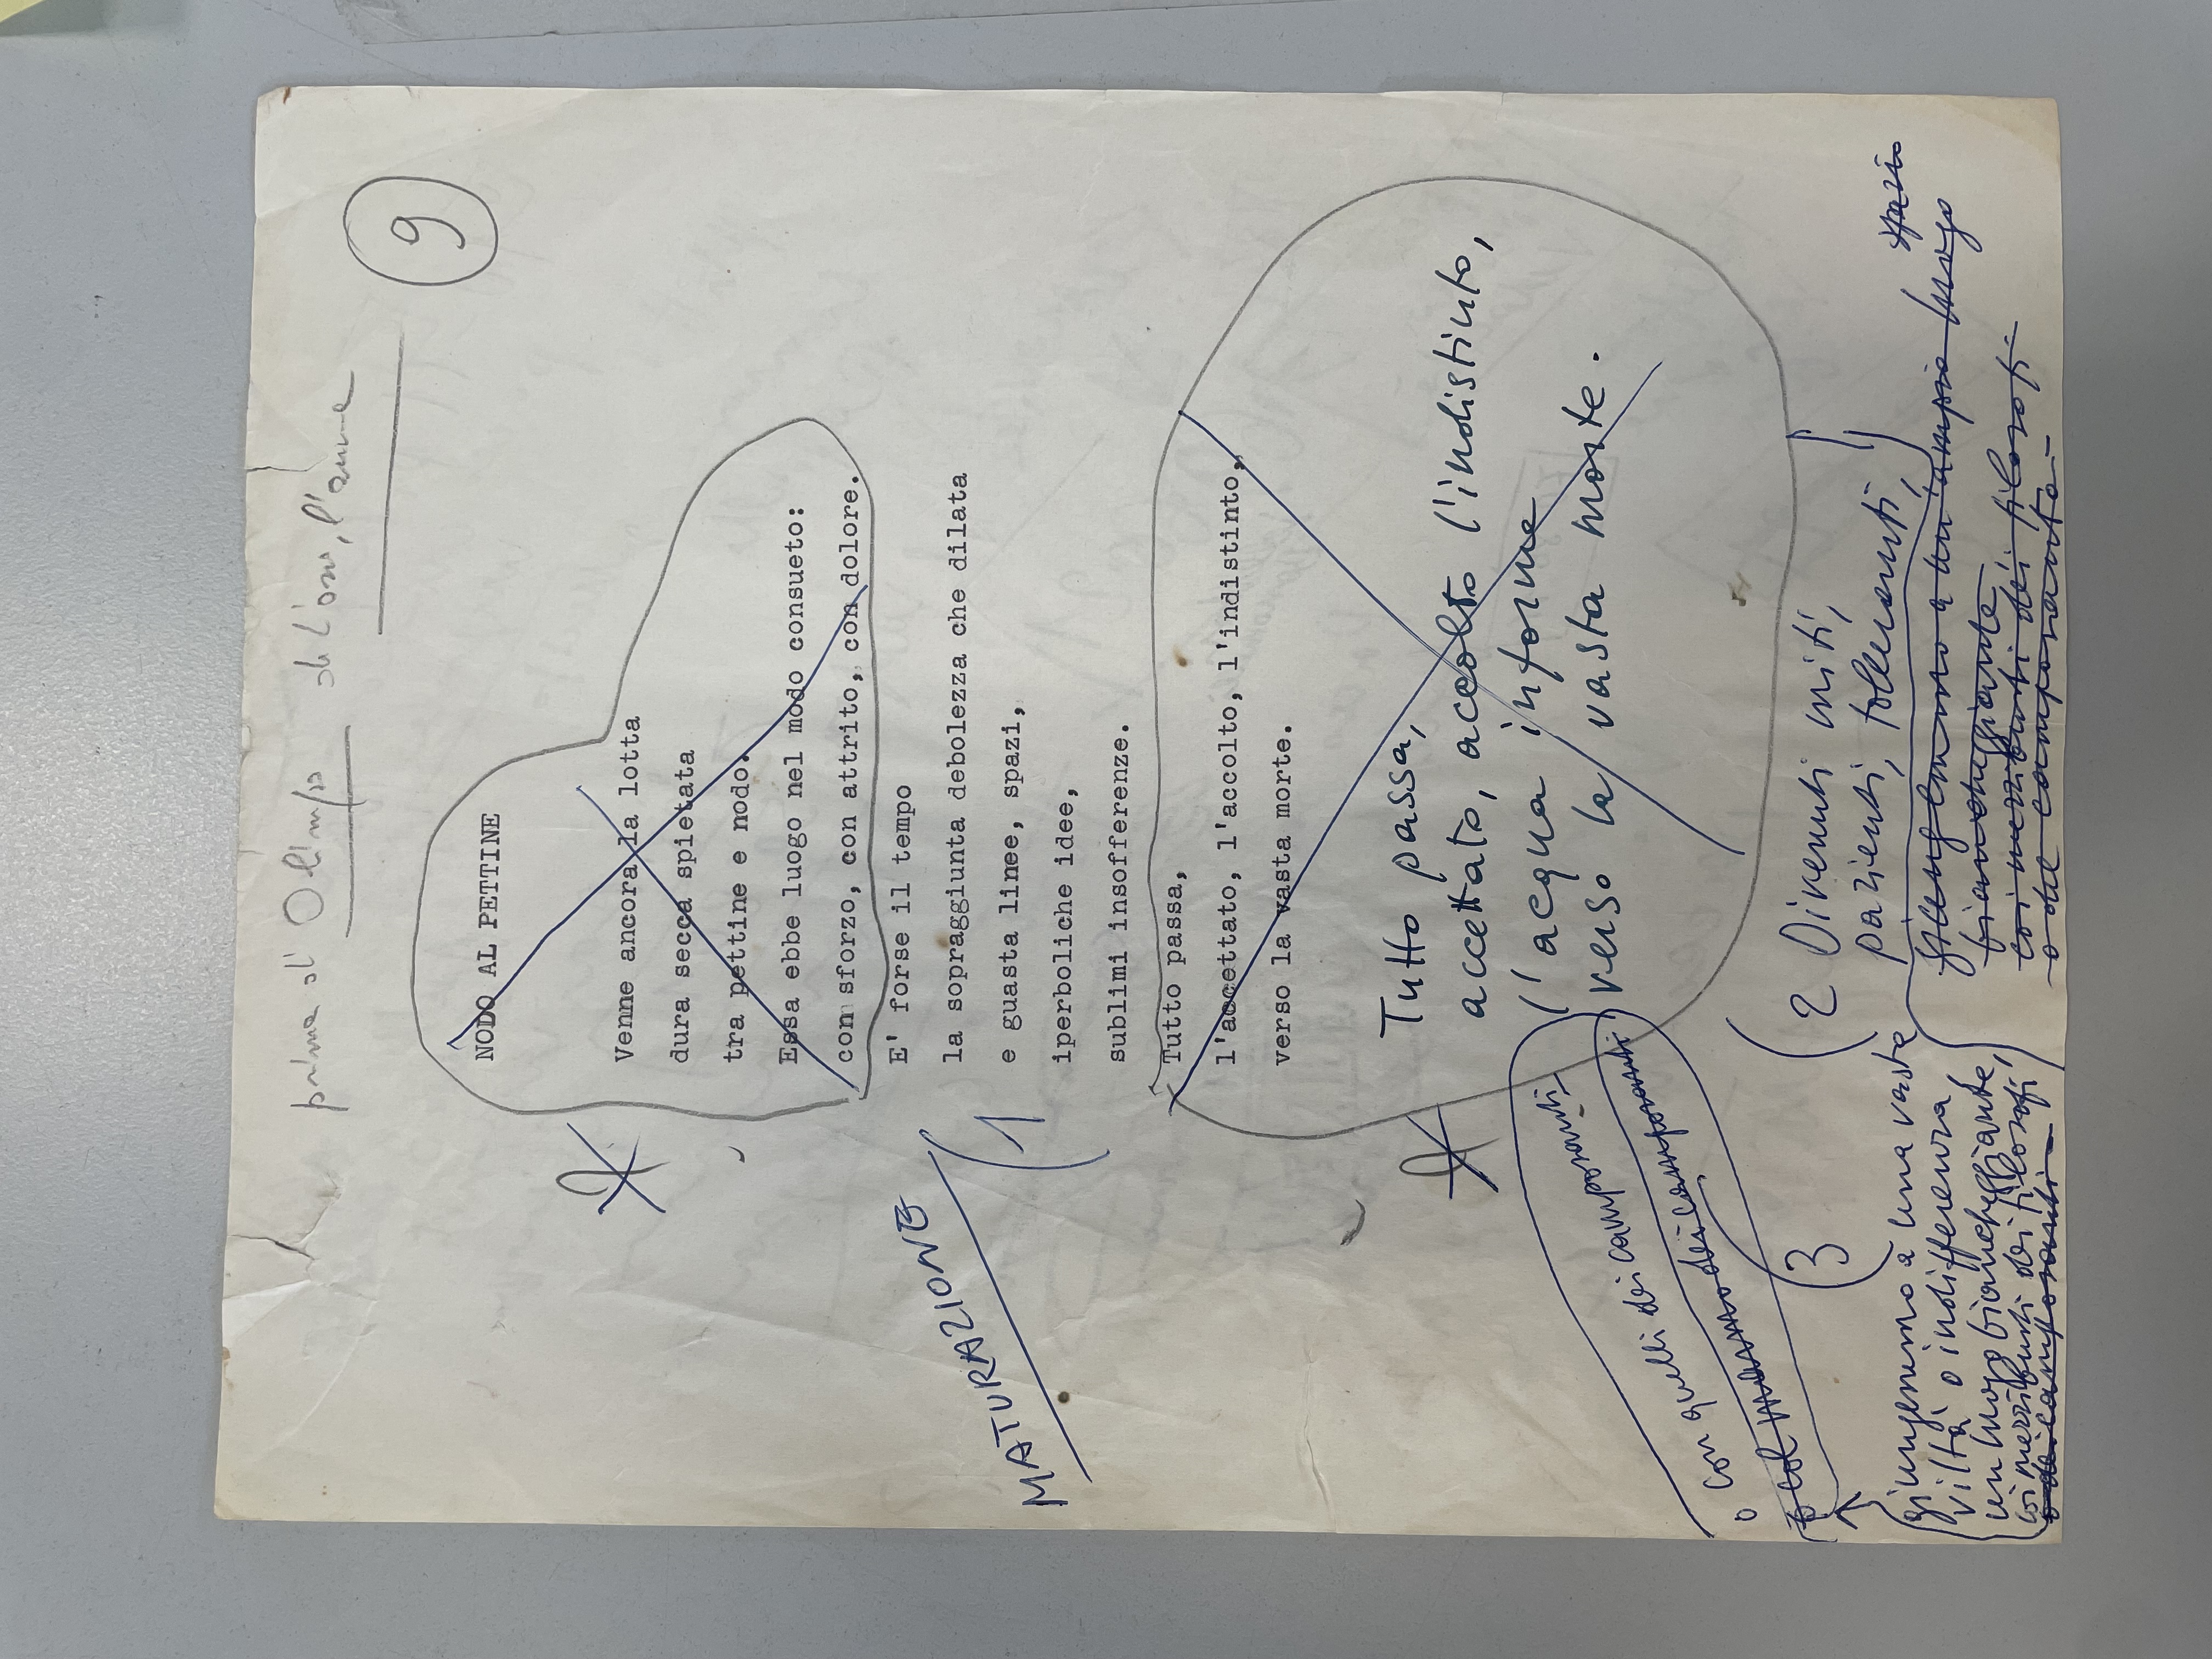 prima d'Olimpo
9
NODO AL PETTINE
Venne ancora la lotta
dura secca spietata
tra pettine e nodo.
Essa ebbe luogo nel modo consueto:
con sforzo, con attrito, con dolore.
MATURAZIONE
(1
E' forse il tempo
la sopraggiunta debolezza che dilata
e guasta linee, spazi,
iperboliche idee,
sublimi insofferenze.
Tutto passa,
l'accettato, l'accolto, l'indistinto,
verso la vasta morte.
Tutto passa,
accettato, accolto l'indistinto,
l'acqua informe
verso la vasta morte.
(2 Divenuti miti,
pazienti, tolleranti,
giungemmo a un ampio luogo
spazio
biancheggiante
coi mezzibusti dei filosofi
(3
giungemmo a una vasta
viltà o indifferenza
un luogo biancheggiante,
coi mezzibusti dei filosofi
o dei camposanti
o con quelli dei camposanti.
dei camposanti